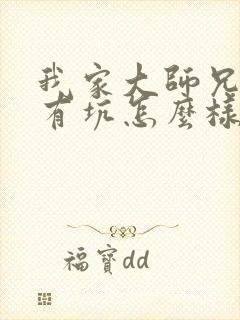 我家大師兄
有坑怎麼樣
福寶dd